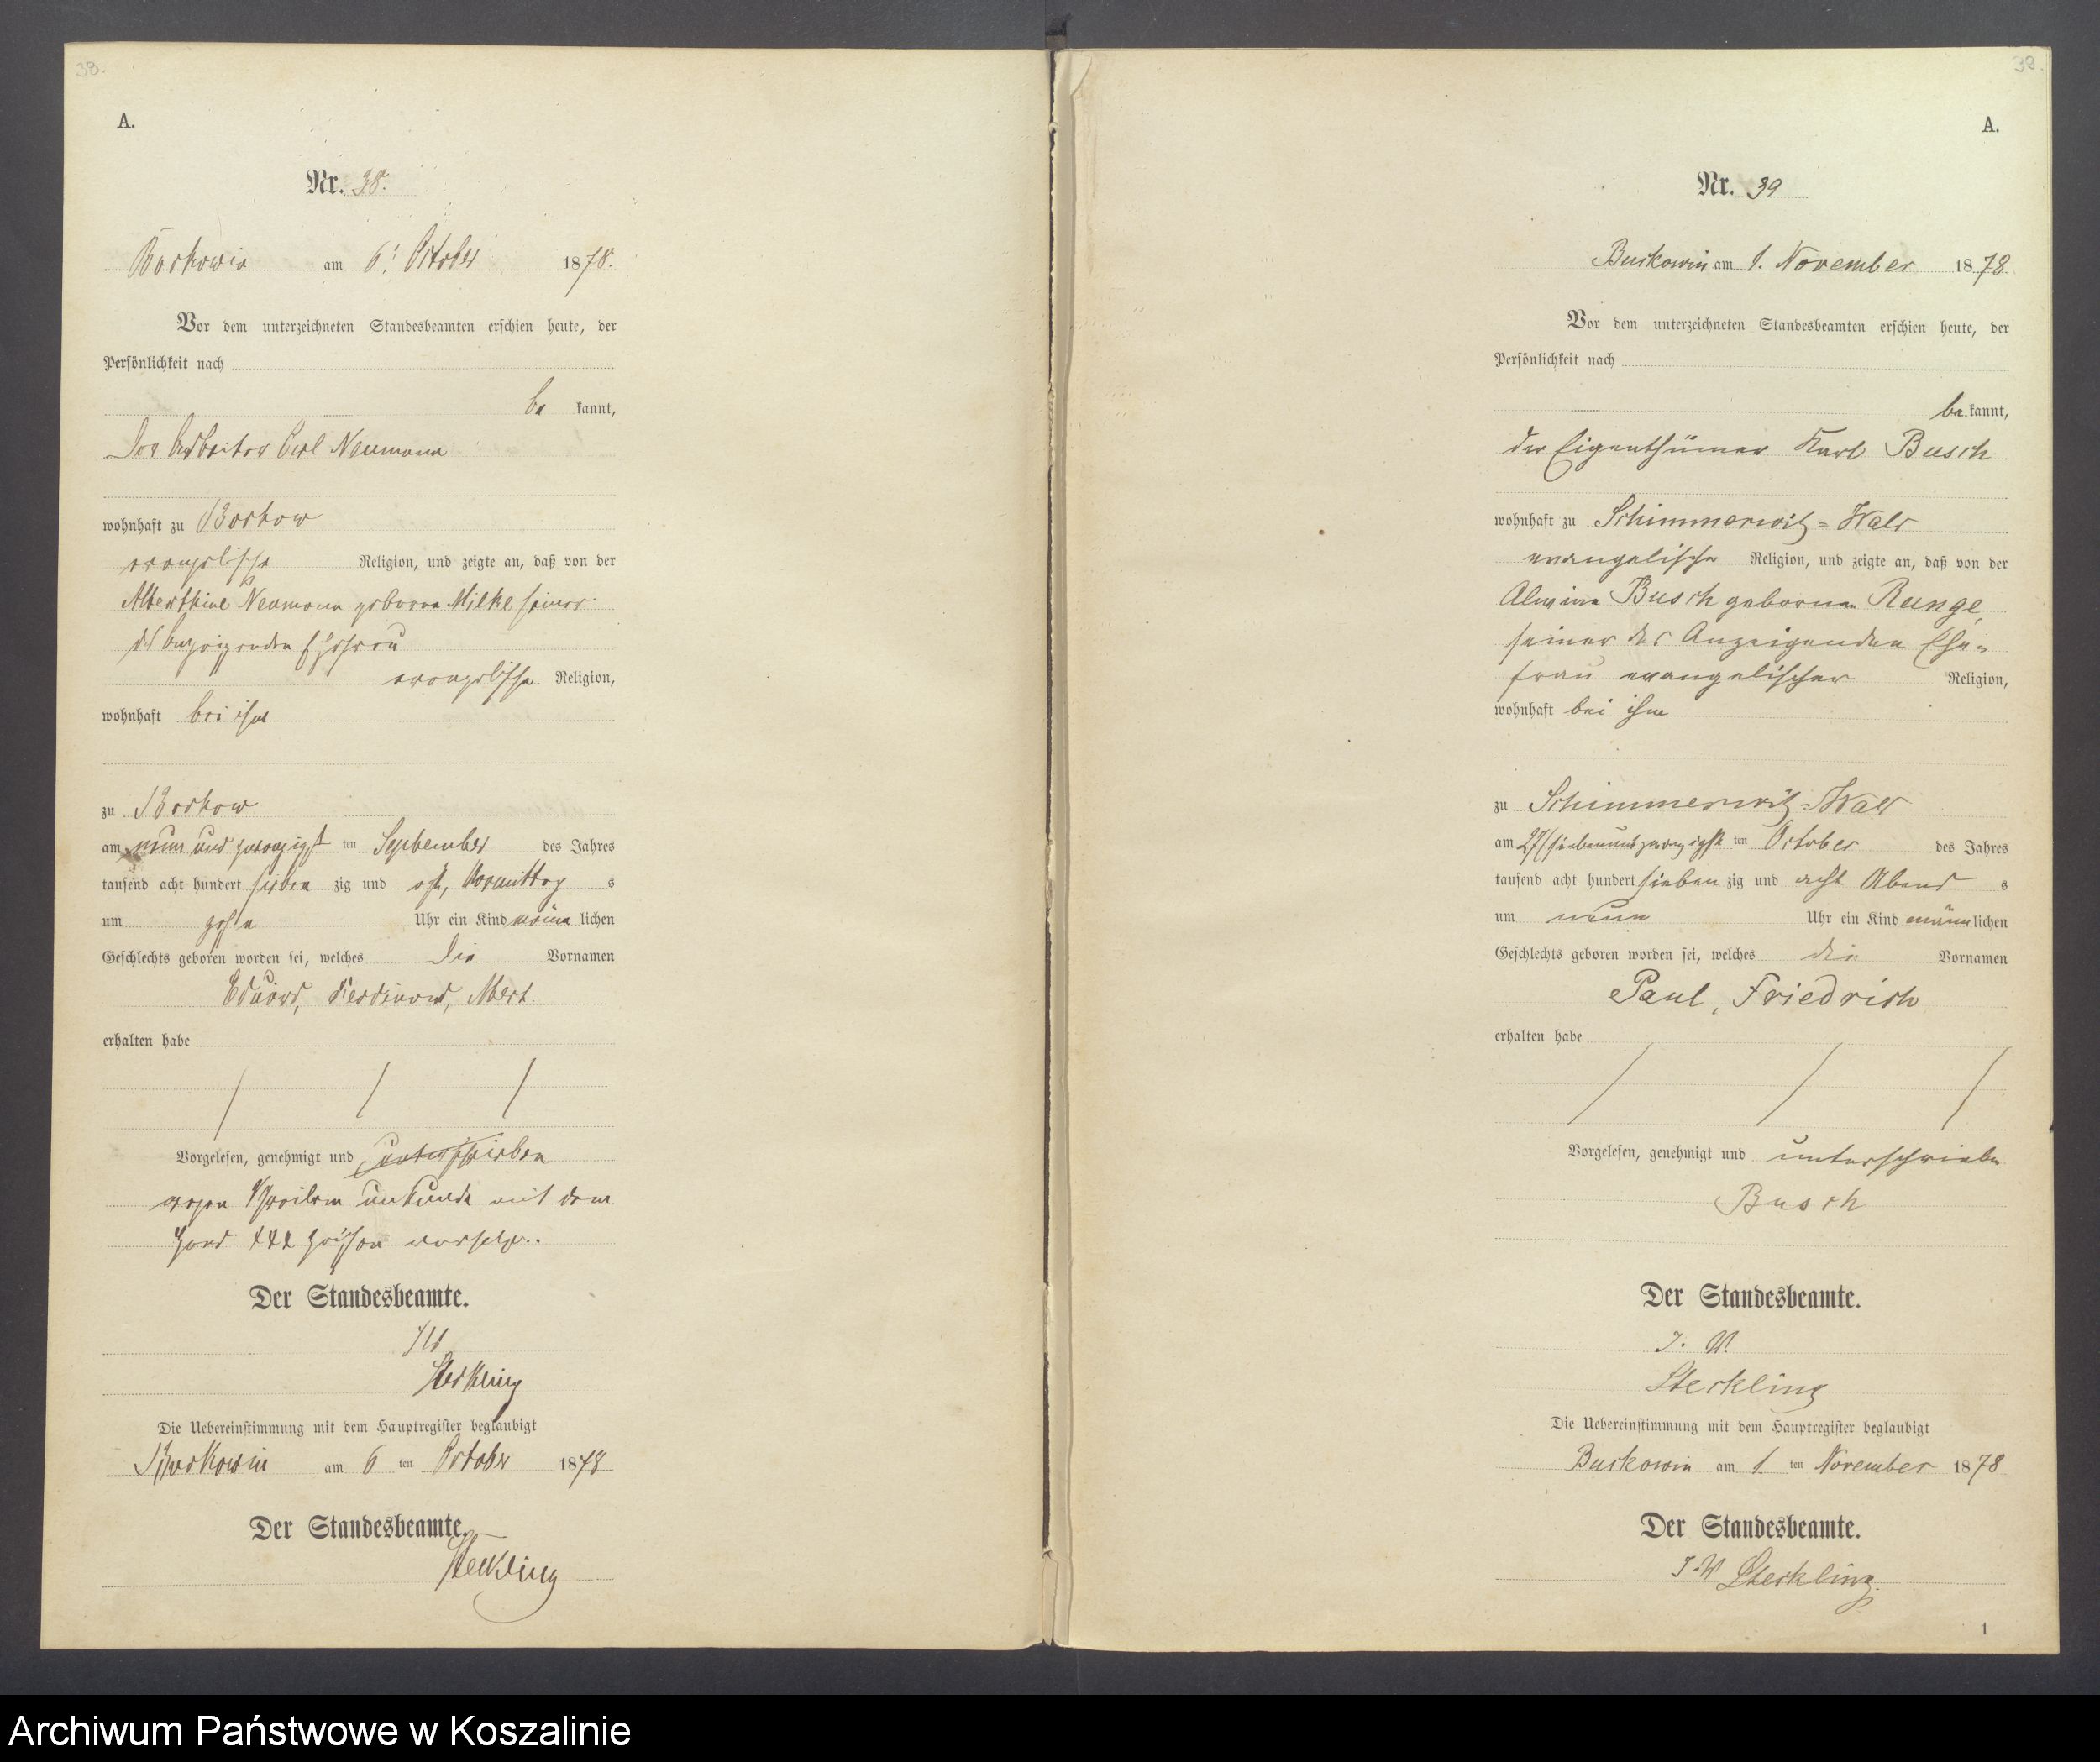 38.
A.
Nr. 38.
Buskowin am 6. October 1878.
Vor dem unterzeichneten Standesbeamten erschien heute, der
Persönlichkeit nach
be kannt,
Der Arbeiter Carl Neumann
wohnhaft zu Boskow
evangelischer Religion, und zeigte an, daß von der
Alberthine Neumann geborne Milke seiner
des Anzeigenden Ehefrau
evangelischer Religion,
wohnhaft bei ihm
zu Boskow
am neun und zwanzigst ten September des Jahres
tausend acht hundert sieben zig und acht, Vormittag s
um zehn Uhr ein Kind männ lichen
Geschlechts geboren worden sei, welches die Vornamen
Eduard, Ferdinand, Albert.
erhalten habe
Vorgelesen, genehmigt und unterschrieben
wegen Schreibens unkunde mit dem
Hand +++ Zeichen versehen.
Der Standesbeamte.
IV
Steckling
Die Uebereinstimmung mit dem Hauptregister beglaubigt
Buskowin am 6 ten October 1878
Der Standesbeamte.
Steckling
38.
A.
Nr. 39
Buskowin am 1. November 1878
Vor dem unterzeichneten Standesbeamten erschien heute, der
Persönlichkeit nach
be kannt,
der Eigenthümer Karl Busch
wohnhaft zu Schimmerwitz=Wald
evangelischer Religion, und zeigte an, daß von der
Alwine Busch gebornen Runge,
seiner des Anzeigenden Ehe=
frau evangelischer Religion,
wohnhaft bei ihm
zu Schimmerwitz=Wald
am 27/siebenundzwanzigst ten October des Jahres
tausend acht hundert sieben zig und acht Abend s
um neun Uhr ein Kind männ lichen
Geschlechts geboren worden sei, welches die Vornamen
Paul, Friedrich
erhalten habe
Vorgelesen, genehmigt und unterschrieben
Busch
Der Standesbeamte.
I. V.
Steckling
Die Uebereinstimmung mit dem Hauptregister beglaubigt
Buskowin am 1. ten November 1878
Der Standesbeamte.
I. V Steckling.
1
Archiwum Państwowe w Koszalinie